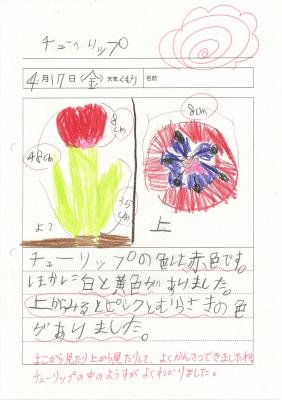 チューリップ
4月17日(金) 天気 くもり 名前
8cm
48cm
35cm
よこ
8cm
上
チューリップの色は赤色です。
ほかに白と黄色がありました。
上からみるとピンクとむらさきの色
がありました。
よこから見たり上から見たりして、よくかんさつできましたね。
チューリップの中のようすがよくわかりました。